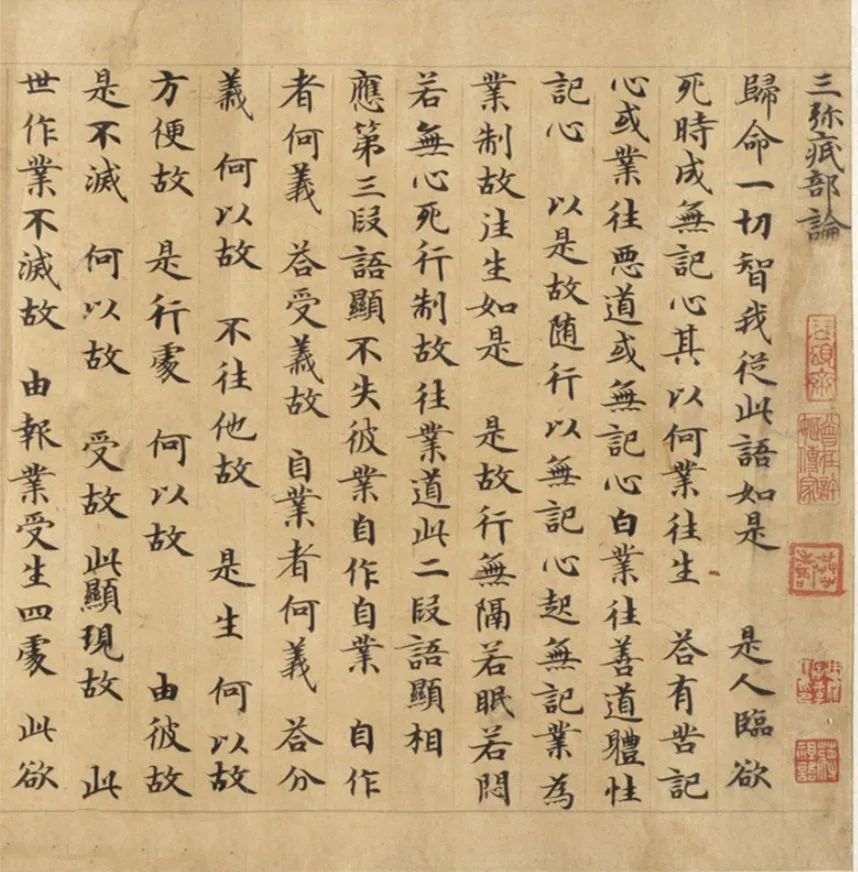 三弥底部論
歸命一切智我從此語如是 是人臨欲
死時成無記心其以何業往生 荅有苦記
心或業往悪道或無記心白業往善道體性
記心 以是故随行以無記心起無記業為
業制故注生如是 是故行無隔若眠若悶
若無心死行制故往業道此二段語顯相
應第三段語顯不失彼業自作自業 自作
者何義 荅受義故 自業者何義 荅分
義 何以故 不往他故 是生 何以故
方便故 是行處 何以故 由彼故
是不滅 何以故 受故 此顯現故 此
世作業不滅故 由報業受生四處 此欲